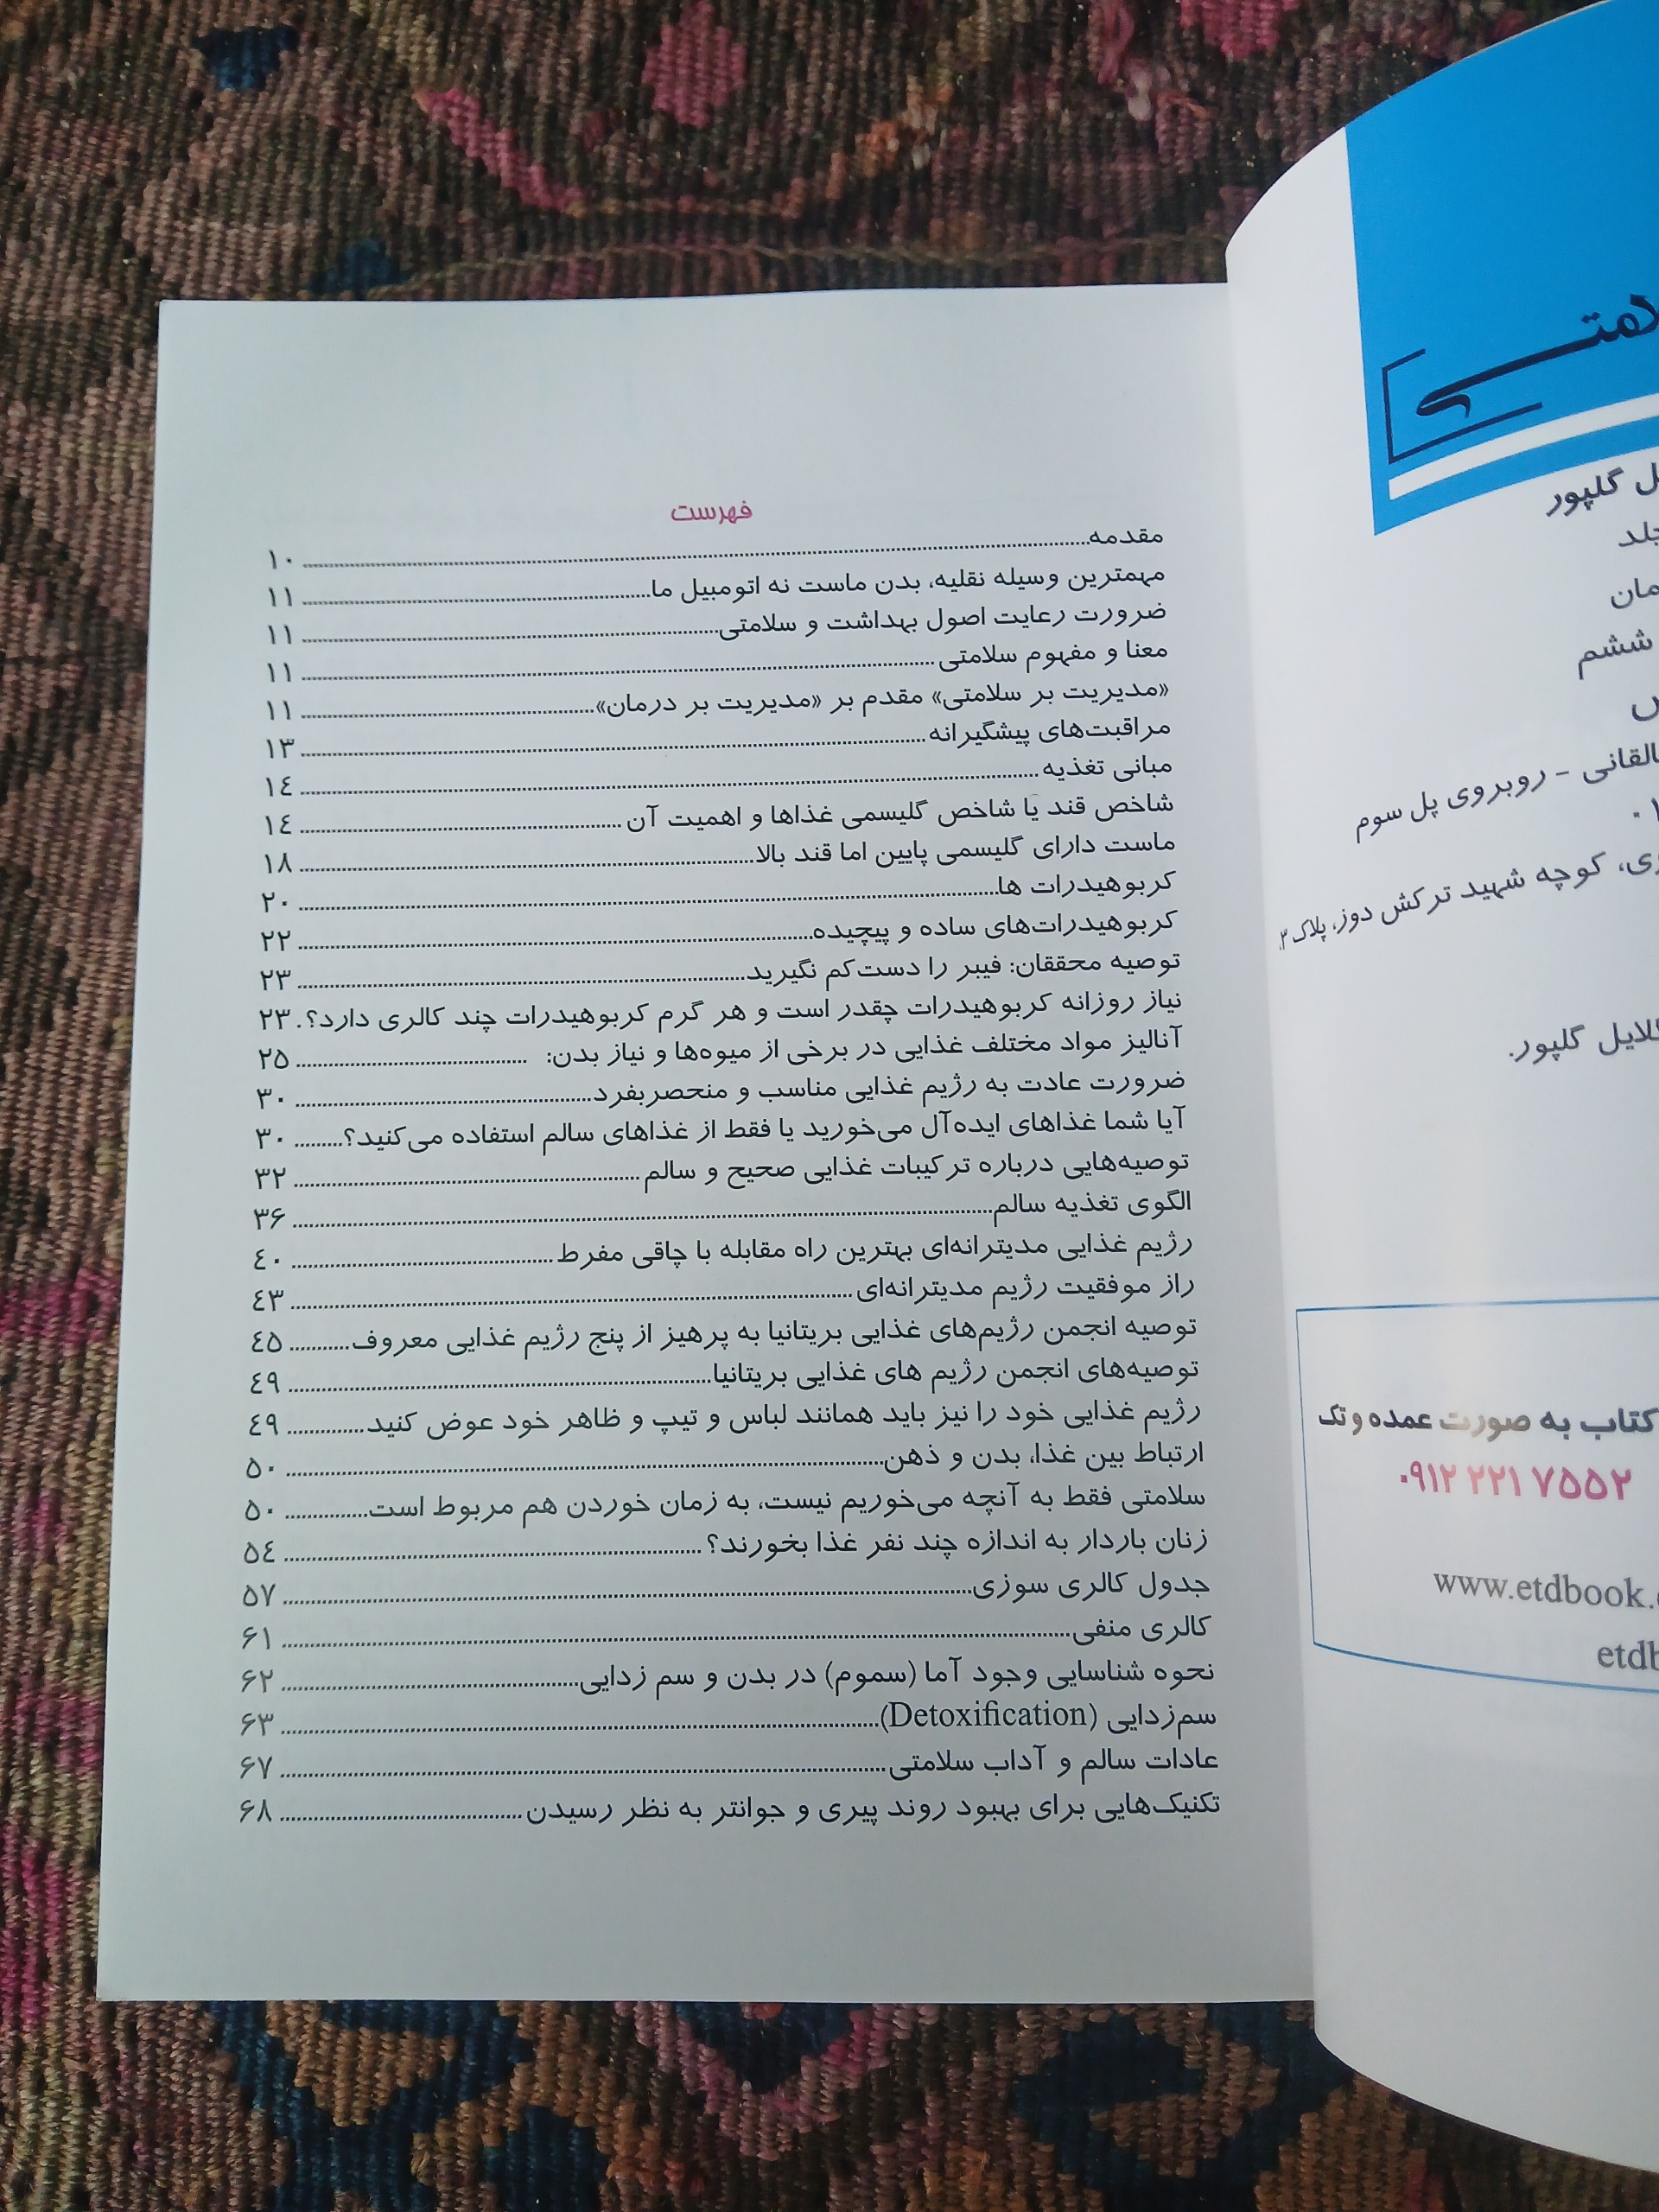 فهرست
مقدمه ۱۰
مهمترین وسیله نقلیه، بدن ماست نه اتومبیل ما ۱۱
ضرورت رعایت اصول بهداشت و سلامتی ۱۱
معنا و مفهوم سلامتی ۱۱
«مدیریت بر سلامتی» مقدم بر «مدیریت بر درمان» ۱۱
مراقبت‌های پیشگیرانه ۱۳
مبانی تغذیه ۱٤
شاخص قند یا شاخص گلیسمی غذاها و اهمیت آن ۱٤
ماست دارای گلیسمی پایین اما قند بالا ۱۸
کربوهیدرات ها ۲۰
کربوهیدرات‌های ساده و پیچیده ۲۲
توصیه محققان: فیبر را دست‌کم نگیرید ۲۳
نیاز روزانه کربوهیدرات چقدر است و هر گرم کربوهیدرات چند کالری دارد؟ ۲۳
آنالیز مواد مختلف غذایی در برخی از میوه‌ها و نیاز بدن: ۲۵
ضرورت عادت به رژیم غذایی مناسب و منحصربفرد ۳۰
آیا شما غذاهای ایده‌آل می‌خورید یا فقط از غذاهای سالم استفاده می‌کنید؟ ۳۰
توصیه‌هایی درباره ترکیبات غذایی صحیح و سالم ۳۲
الگوی تغذیه سالم ۳۶
رژیم غذایی مدیترانه‌ای بهترین راه مقابله با چاقی مفرط ٤۰
راز موفقیت رژیم مدیترانه‌ای ٤۳
توصیه انجمن رژیم‌های غذایی بریتانیا به پرهیز از پنج رژیم غذایی معروف ٤۵
توصیه‌های انجمن رژیم های غذایی بریتانیا ٤۹
رژیم غذایی خود را نیز باید همانند لباس و تیپ و ظاهر خود عوض کنید ٤۹
ارتباط بین غذا، بدن و ذهن ۵۰
سلامتی فقط به آنچه می‌خوریم نیست، به زمان خوردن هم مربوط است ۵۰
زنان باردار به اندازه چند نفر غذا بخورند؟ ۵٤
جدول کالری سوزی ۵۷
کالری منفی ۶۱
نحوه شناسایی وجود آما (سموم) در بدن و سم زدایی ۶۲
سم‌زدایی (Detoxification) ۶۳
عادات سالم و آداب سلامتی ۶۷
تکنیک‌هایی برای بهبود روند پیری و جوانتر به نظر رسیدن ۶۸
گلپور
ششم
روبروی پل سوم
کوچه شهید ترکش دوز، پلاک ۲
گلپور.
کتاب به صورت عمده و تک
۰۹۱۲ ۲۲۱ ۷۵۵۲
www.etdbook.
etdb